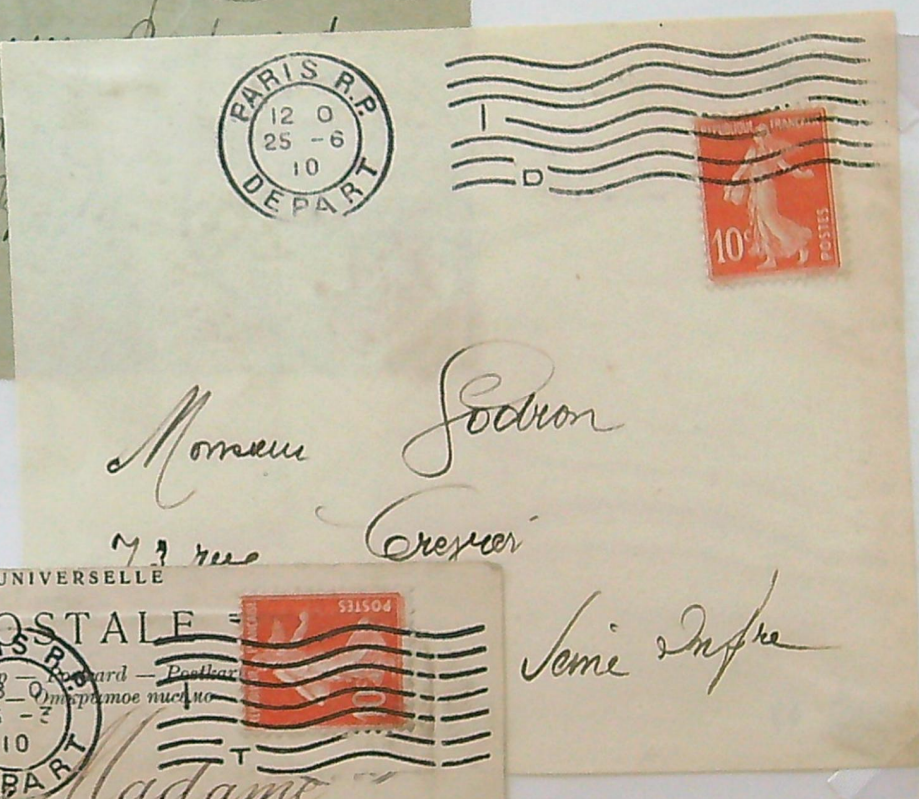 PARIS R.P.
12 0
25 -6
10
DEPART
I
D
REPUBLIQUE FRANCAISE
10c
POSTES
Monsieur Godron
73 rue
Seine Infre
UNIVERSELLE
POSTES
10
OSTALE
IS R.P.
Postkar
Открытое письмо
8 0
-3
10
PART
I
T
Madame